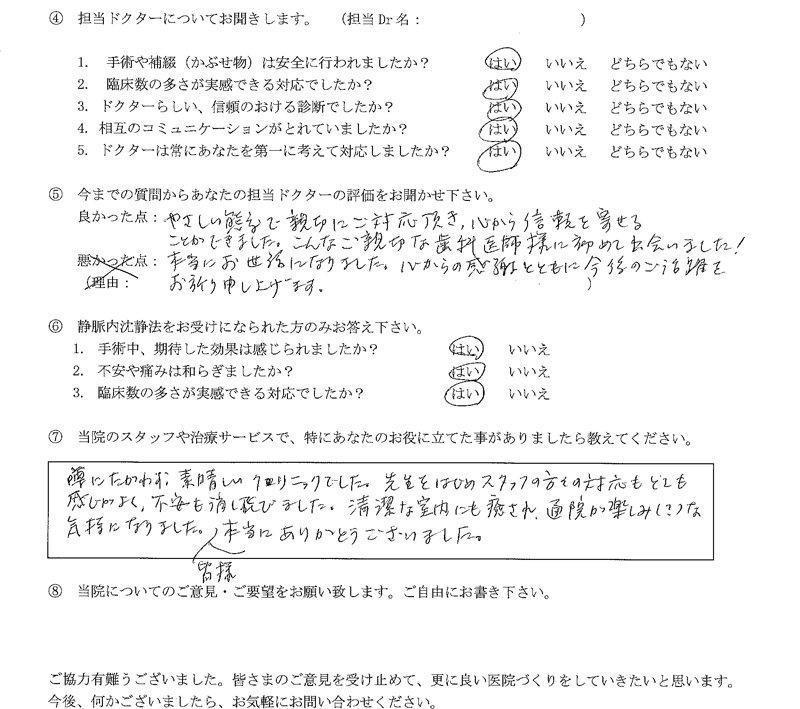 ④ 担当ドクターについてお聞きします。 (担当Dr名: )
1. 手術や補綴(かぶせ物)は安全に行われましたか? はい いいえ どちらでもない
2. 臨床数の多さが実感できる対応でしたか? はい いいえ どちらでもない
3. ドクターらしい、信頼のおける診断でしたか? はい いいえ どちらでもない
4. 相互のコミュニケーションがとれていましたか? はい いいえ どちらでもない
5. ドクターは常にあなたを第一に考えて対応しましたか? はい いいえ どちらでもない
⑤ 今までの質問からあなたの担当ドクターの評価をお聞かせ下さい。
良かった点: やさしい態度で親切にご対応頂き、心から信頼を寄せる
ことができました。こんなご親切な歯科医師様に初めて出会いました!
悪かった点: 本当にお世話になりました。心からの感謝とともに今後のご活躍を
(理由: お祈り申し上げます。 )
⑥ 静脈内沈静法をお受けになられた方のみお答え下さい。
1. 手術中、期待した効果は感じられましたか? はい いいえ
2. 不安や痛みは和らぎましたか? はい いいえ
3. 臨床数の多さが実感できる対応でしたか? はい いいえ
⑦ 当院のスタッフや治療サービスで、特にあなたのお役に立てた事がありましたら教えてください。
噂にたがわず素晴しいクリニックでした。先生をはじめスタッフの方々の対応もとても
感じがよく、不安も消し飛びました。清潔な室内にも癒され、通院が楽しみ(?)な
気持になりました。本当にありがとうございました。
皆様
⑧ 当院についてのご意見・ご要望をお願い致します。ご自由にお書き下さい。
ご協力有難うございました。皆さまのご意見を受け止めて、更に良い医院づくりをしていきたいと思います。
今後、何かございましたら、お気軽にお問い合わせください。